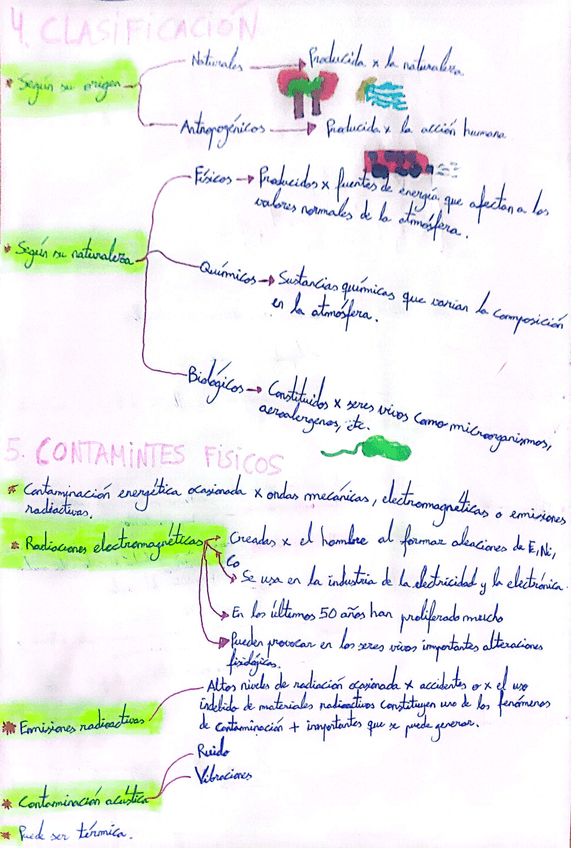 4. CLASIFICACIÓN
* Según su origen
Naturales → Producida x la naturaleza
Antropogénicos → Producida x la acción humana
* Según su naturaleza
Físicos → Producidos x fuentes de energía que afectan a los
valores normales de la atmósfera.
Químicos → Sustancias químicas que varian la composición
en la atmósfera.
Biológicos → Constituidos x seres vivos como microorganismos,
aeroalergenos, etc.
5. CONTAMINTES FÍSICOS
* Contaminación energética ocasionada x ondas mecánicas, electromagnéticas o emisiones
radiactivas.
* Radiaciones electromagnéticas → Creadas x el hombre al formar aleaciones de E, Ni,
Co
→ Se usa en la industria de la electricidad y la electrónica.
→ En los últimos 50 años han proliferado mucho
→ Pueden provocar en los seres vivos importantes alteraciones
fisiológicas.
* Emisiones radioactivas
Altos niveles de radiación ocasionada x accidentes o x el uso
indebido de materiales radioactivos constituyen uno de los fenómenos
de contaminación + importantes que se puede generar.
* Contaminación acústica
Ruido
Vibraciones
* Puede ser térmica.